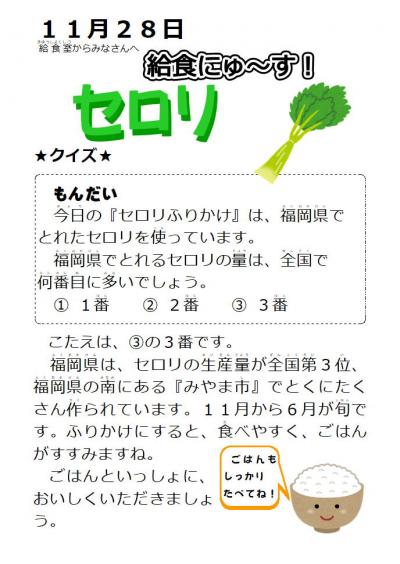 １１月２８日
給食室からみなさんへ
給食にゅ～す！
セロリ
★クイズ★
もんだい
今日の『セロリふりかけ』は、福岡県で
とれたセロリを使っています。
福岡県でとれるセロリの量は、全国で
何番目に多いでしょう。
① １番　② ２番　③ ３番
こたえは、③の３番です。
福岡県は、セロリの生産量が全国第３位、
福岡県の南にある『みやま市』でとくにたく
さん作られています。１１月から６月が旬で
す。ふりかけにすると、食べやすく、ごはん
がすすみますね。
ごはんといっしょに、
おいしくいただきましょ
う。
ごはんも
しっかり
たべてね！